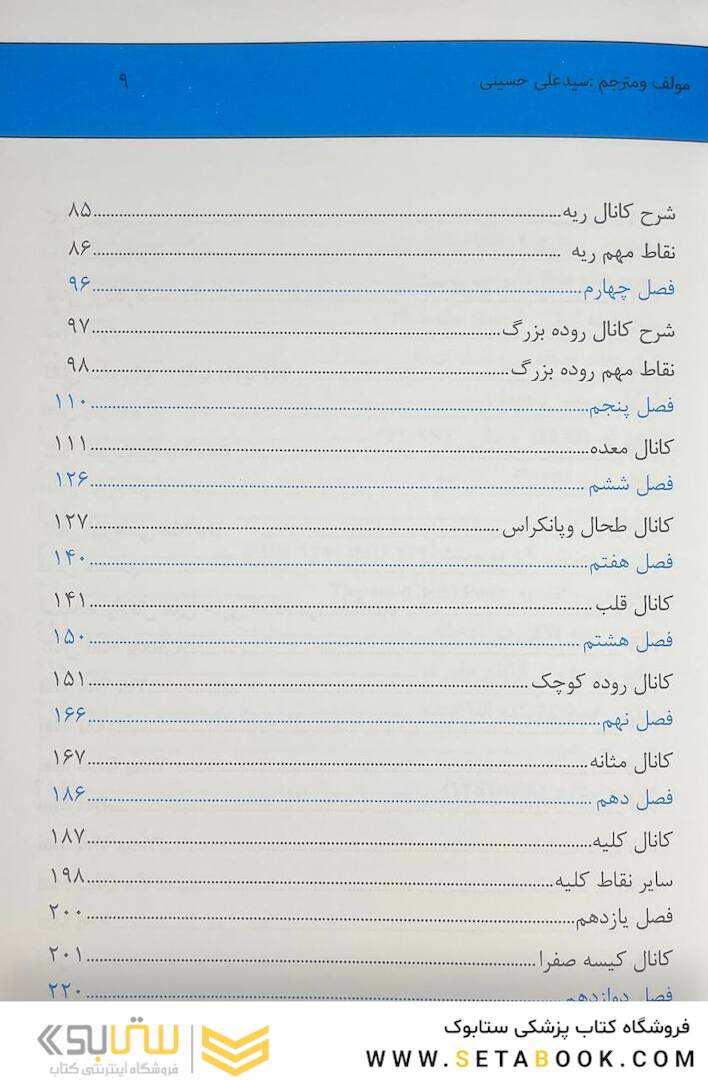 مولف ومترجم :سیدعلی حسینی ۹
شرح کانال ریه ۸۵
نقاط مهم ریه ۸۶
فصل چهارم ۹۶
شرح کانال روده بزرگ ۹۷
نقاط مهم روده بزرگ ۹۸
فصل پنجم ۱۱۰
کانال معده ۱۱۱
فصل ششم ۱۲۶
کانال طحال وپانکراس ۱۲۷
فصل هفتم ۱۴۰
کانال قلب ۱۴۱
فصل هشتم ۱۵۰
کانال روده کوچک ۱۵۱
فصل نهم ۱۶۶
کانال مثانه ۱۶۷
فصل دهم ۱۸۶
کانال کلیه ۱۸۷
سایر نقاط کلیه ۱۹۸
فصل یازدهم ۲۰۰
کانال کیسه صفرا ۲۰۱
فصل دوازدهم ۲۲۰
فروشگاه کتاب پزشکی ستابوک
WWW.SETABOOK.COM
ستابوک
فروشگاه اینترنتی کتاب